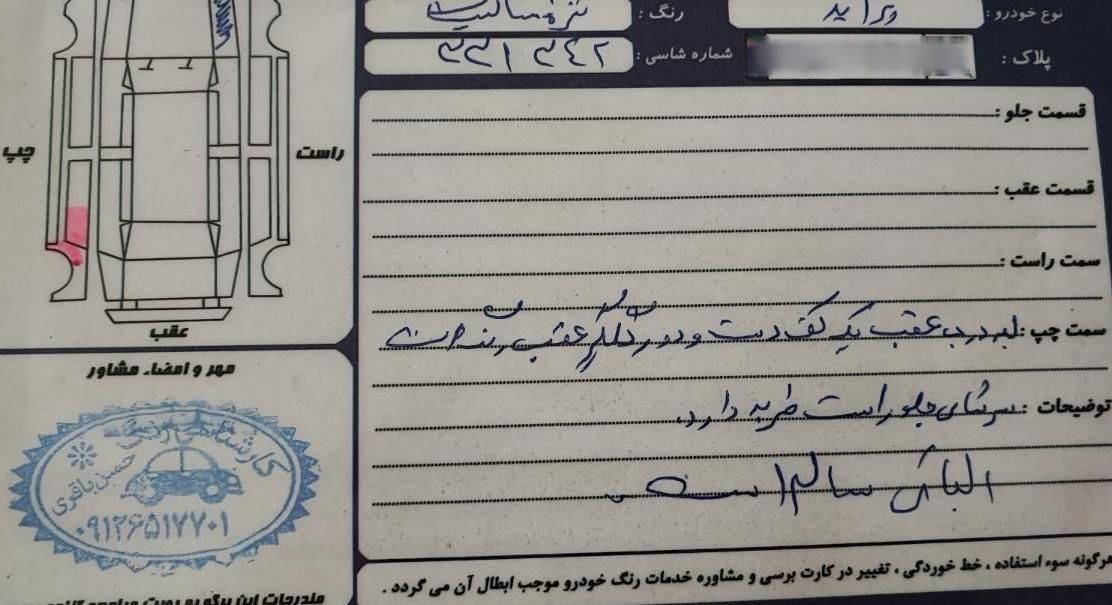 نوع خودرو : پراید
رنگ :
پلاک :
شماره شاسی : ۳۳۱ ۳۴۲
قسمت جلو :
قسمت عقب :
سمت راست :
سمت چپ : لبه درب عقب یک کف دست و دور گلگیر عقب رنگ است
توضیحات : سرشاسی جلو راست ضربه دارد.
الباقی سالم است.
هرگونه سوء استفاده ، خط خوردگی ، تغییر در کارت برسی و مشاوره خدمات رنگ خودرو موجب ابطال آن می گردد .
چپ
راست
عقب
مهر و امضاء مشاور
کارشناسی رنگ
حسن باقری
۰۹۱۲۶۵۱۷۷۰۱
مندرجات این برگه